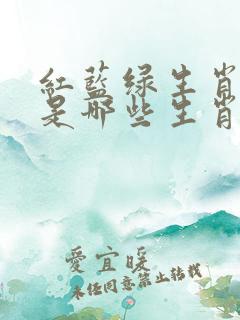 紅藍绿生肖
是哪些生肖
愛宜暖
未经同意禁止转载